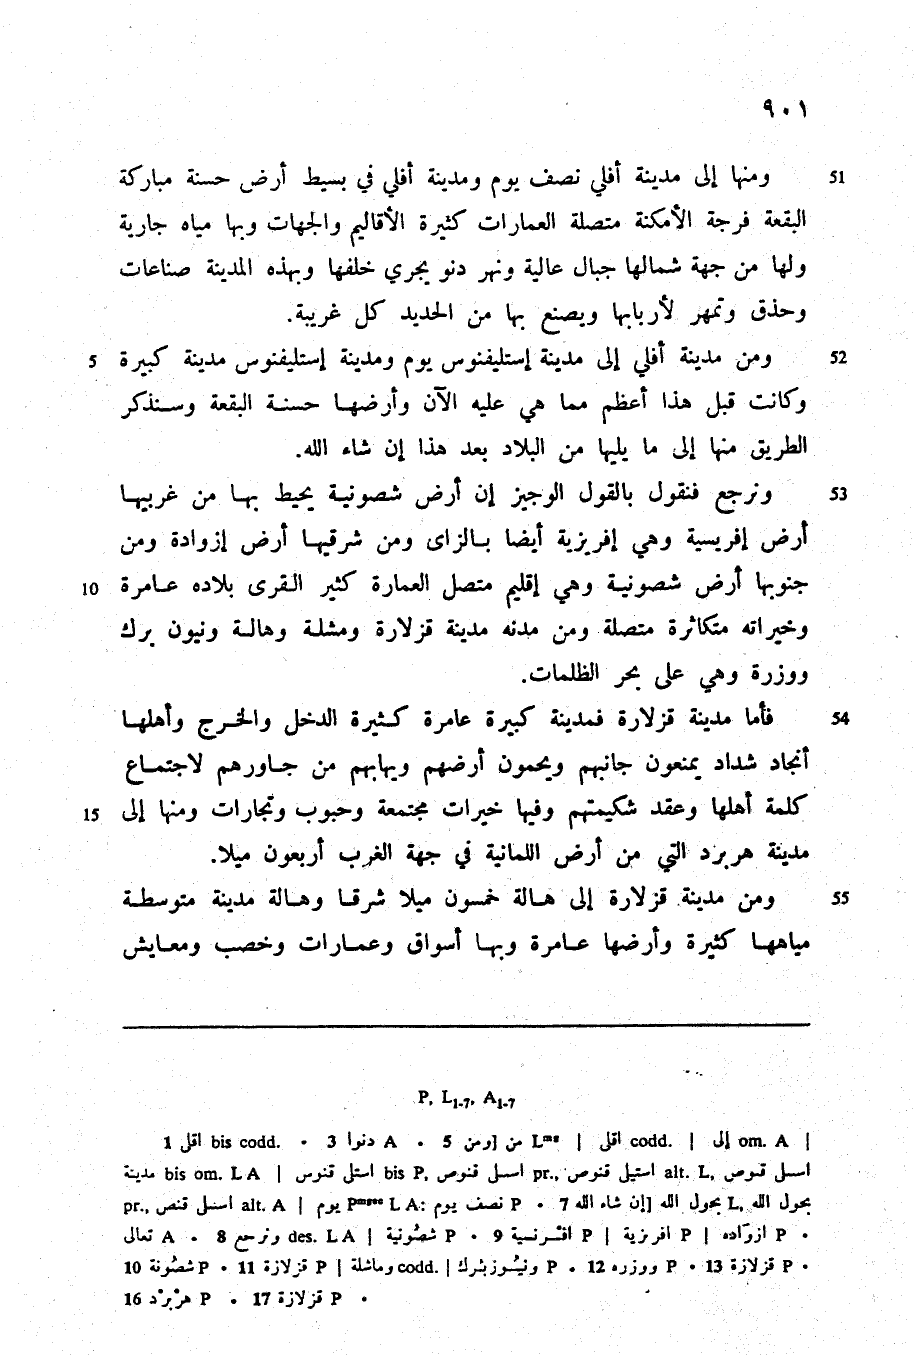 ٩٠١
51 ومنها إلى مدينة أفلي نصف يوم ومدينة أفلي في بسيط أرض حسنة مباركة
البقعة فرجة الأمكنة متصلة العمارات كثيرة الأقاليم والجهات وبها مياه جارية
ولها من جهة شمالها جبال عالية ونهر دنو يجري خلفها وبهذه المدينة صناعات
وحذق وتمهر لأربابها ويصنع بها من الحديد كل غريبة.
52 ومن مدينة أفلي إلى مدينة إستليفنوس يوم ومدينة إستليفنوس مدينة كبيرة 5
وكانت قبل هذا أعظم مما هي عليه الآن وأرضها حسنة البقعة وسنذكر
الطريق منها إلى ما يليها من البلاد بعد هذا إن شاء الله.
53 ونرجع فنقول بالقول الوجيز إن أرض شصونية يحيط بها من غربيها
أرض إفريسية وهي إفريزية أيضا بالزاى ومن شرقيها أرض إزوادة ومن
جنوبها أرض شصونية وهي إقليم متصل العمارة كثير القرى بلاده عامرة 10
وخيراته متكاثرة متصلة ومن مدنه مدينة قزلارة ومشلة وهالة ونيون برك
ووزرة وهي على بحر الظلمات.
54 فأما مدينة قزلارة فمدينة كبيرة عامرة كثيرة الدخل والخرج وأهلها
أنجاد شداد يمنعون جانبهم ويحمون أرضهم ويهابهم من جاورهم لاجتماع
كلمة أهلها وعقد شكيمتهم وفيها خيرات مجتمعة وحبوب وتجارات ومنها إلى 15
مدينة هربرد التي من أرض اللمانية في جهة الغرب أربعون ميلا.
55 ومن مدينة قزلارة إلى هالة خمسون ميلا شرقا وهالة مدينة متوسطة
مياهها كثيرة وأرضها عامرة وبها أسواق وعمارات وخصب ومعايش
P, L1-7, A1-7
1 اقلي bis codd. • 3 دنوا A • 5 ومن] من Lmg | اقلي codd. | إلى om. A |
مدينة bis om. L A | استلي قنوس bis P, اسلي قنوص pr., استيلي قنوص alt. L, اسلي قوص
pr., اسلي قنص alt. A | يوم Pmg L A: نصف يوم P • 7 إن شاء الله] بحول الله L, بحول الله
تعالى A • 8 ونرجع des. L A | شصونية P • 9 افرنسية P | افريزية P | ازراده P •
10 شصونة P • 11 قزلازة P | وماشلة codd. | ونيوزبرك P • 12 ووزره P • 13 قزلازة P •
16 هربرد P • 17 قزلازة P •